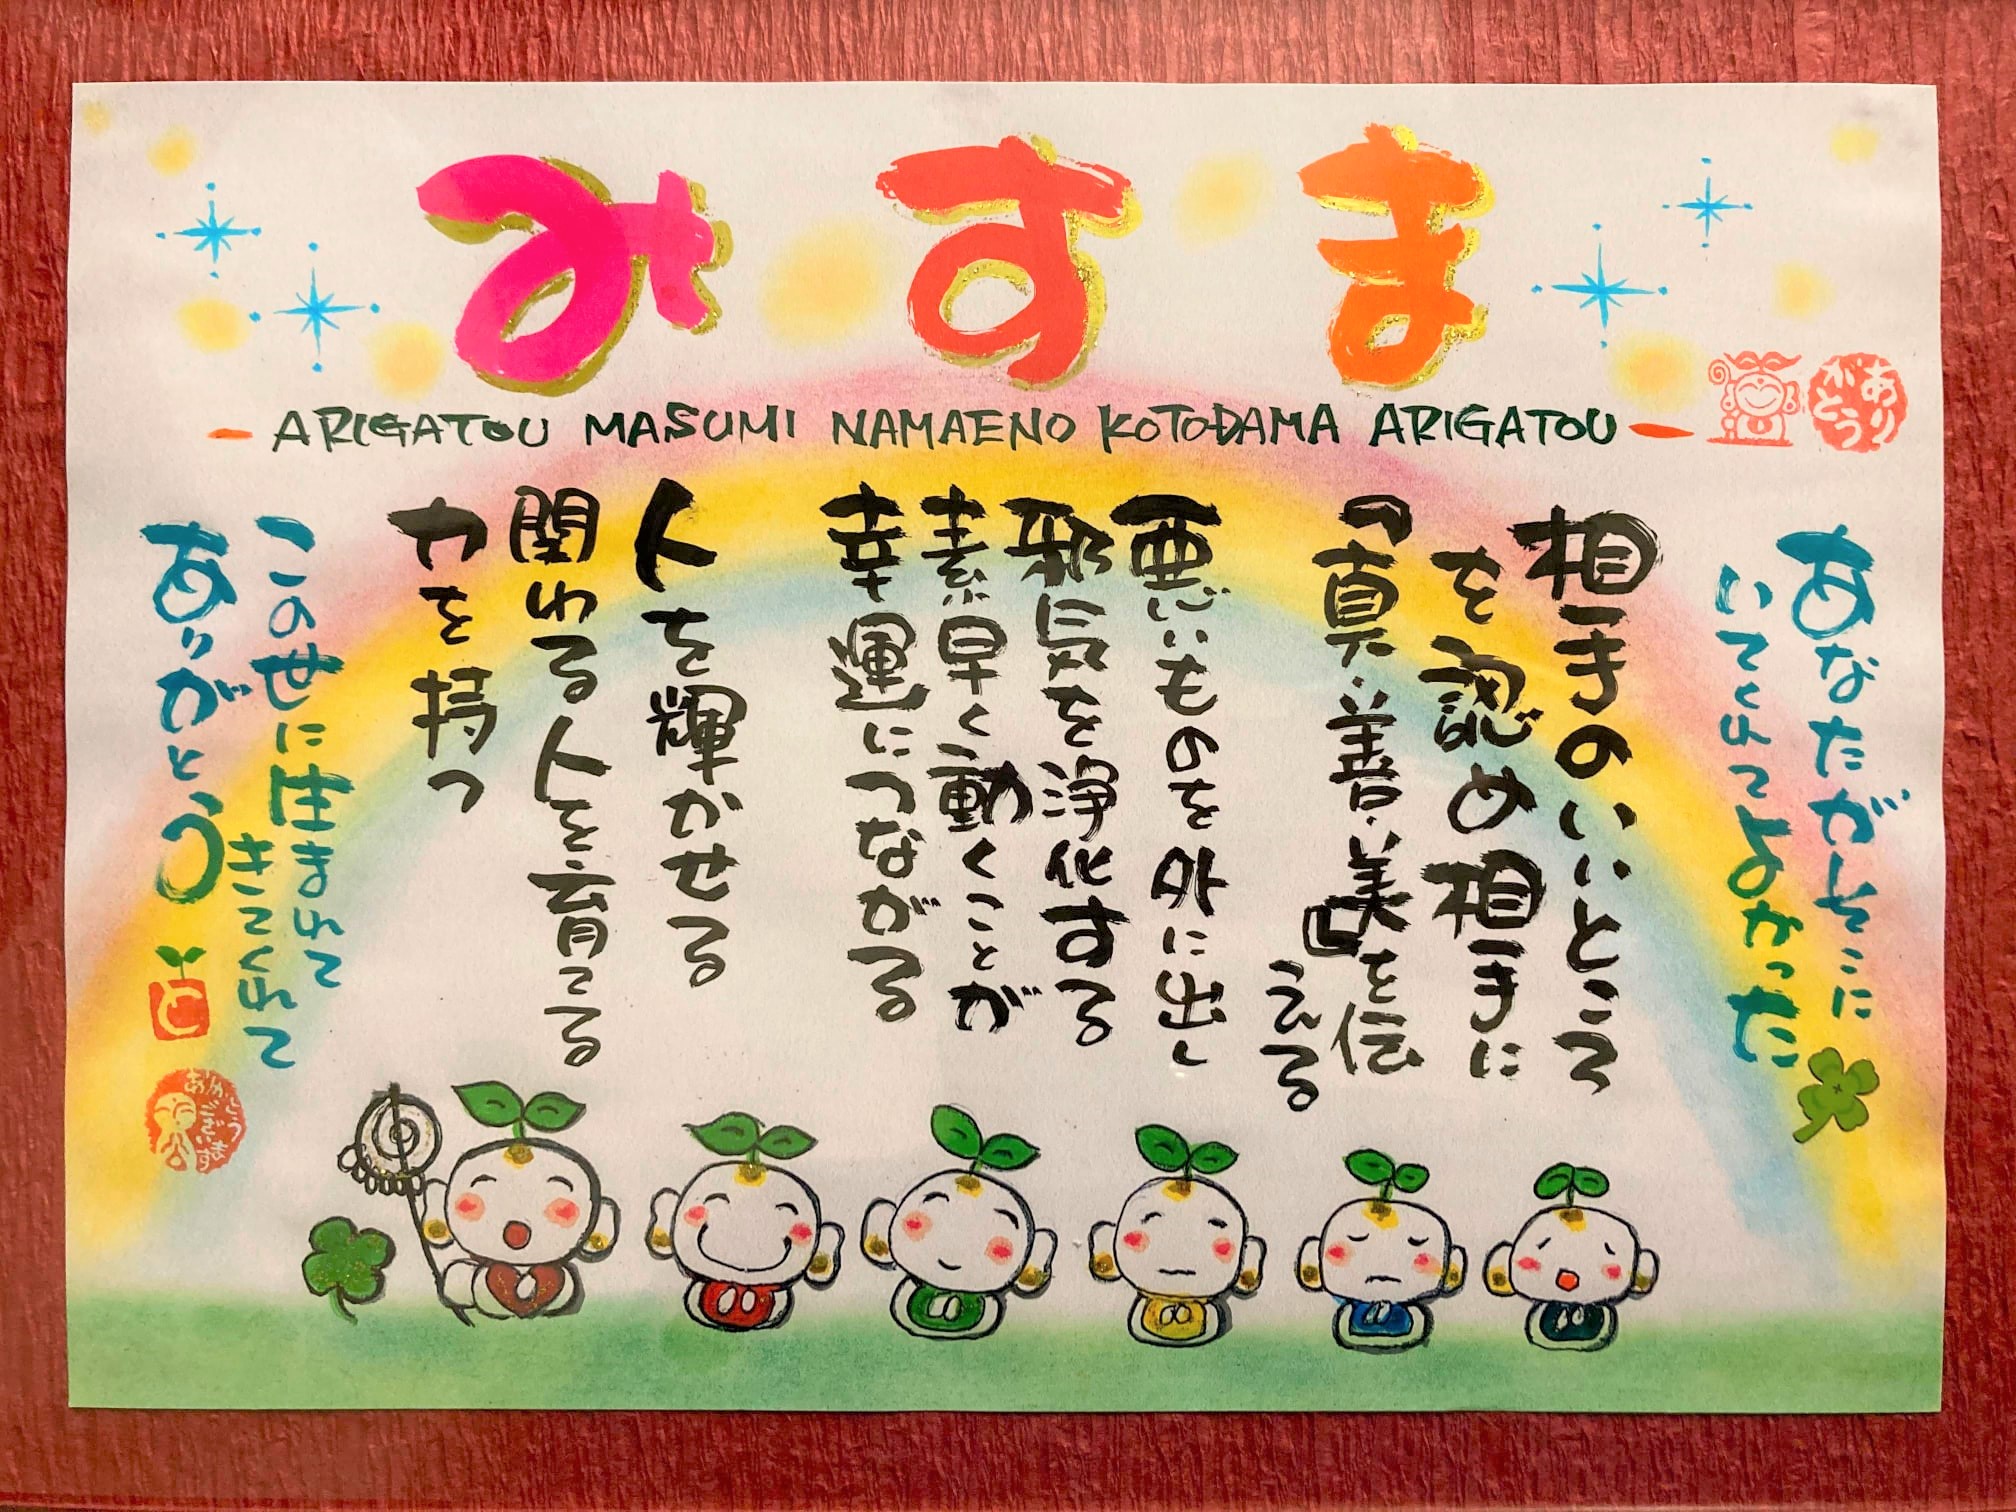 ますみ
ARIGATOU MASUMI NAMAENO KOTODAMA ARIGATOU
ありがとう
あなたがそこに
いてくれてよかった
相手のいいところ
を認め相手に
『真・善・美』を伝
える
悪いものを外に出し
邪気を浄化する
素早く動くことが
幸運につながる
人を輝かせる
関わる人を育てる
力を持つ
この世に生まれて
きてくれて
ありがとう
と
ありがとうございます